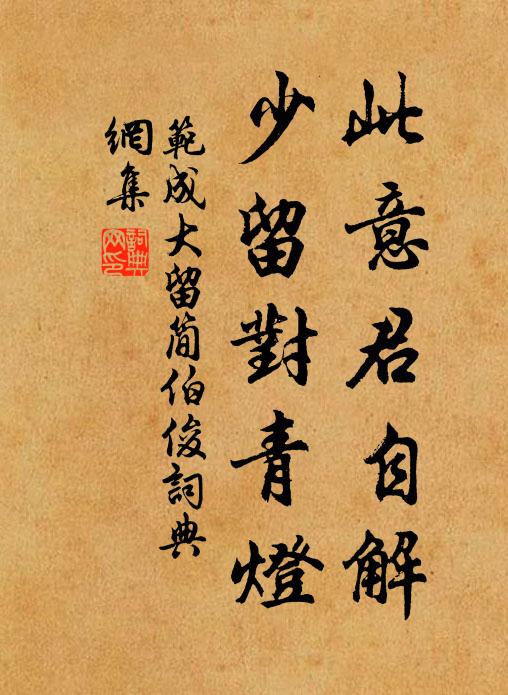 此意君自解
少留對青燈
範成大留簡伯俊詞典
網集
詞典
网印